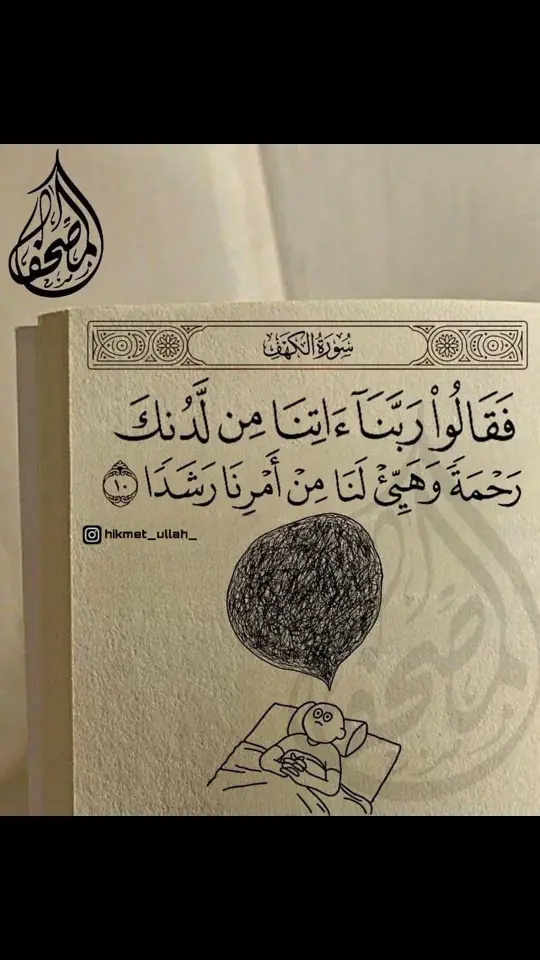 المصحف
سُورَةُ الكَهْفِ
فَقَالُوا۟ رَبَّنَآ ءَاتِنَا مِن لَّدُنكَ
رَحْمَةً وَهَيِّئْ لَنَا مِنْ أَمْرِنَا رَشَدًا ١٠
hikmet_ullah_
المصحف